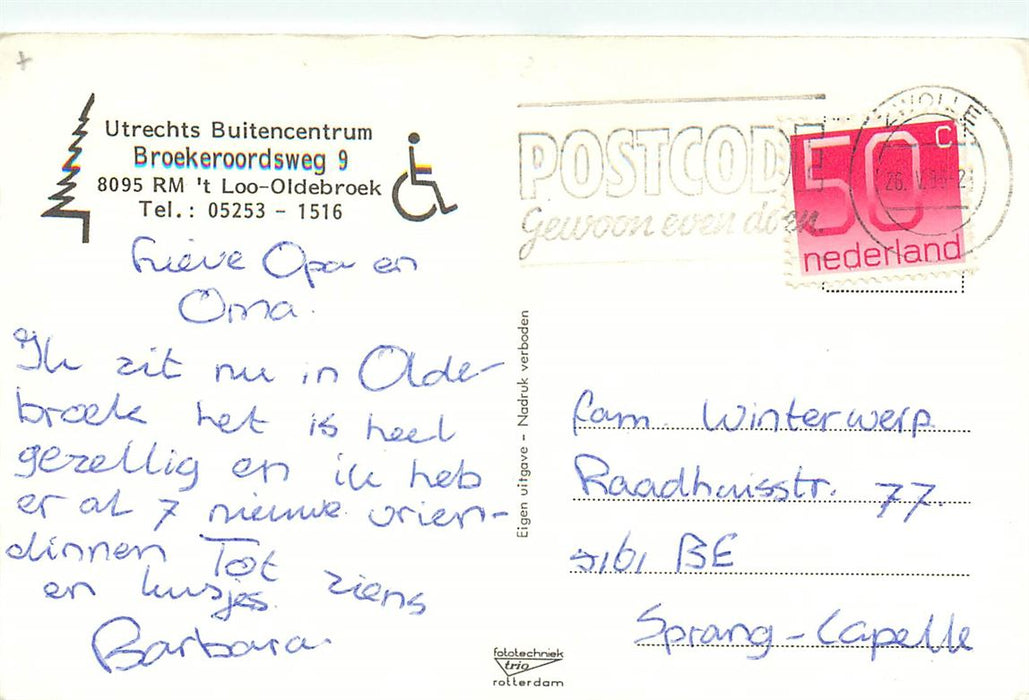 Utrechts Buitencentrum
Broekeroordsweg 9
8095 RM 't Loo-Oldebroek
Tel.: 05253 - 1516
POSTCODE
Gewoon even doen
ZWOLLE
50 c
nederland
Lieve Opa en
Oma.
Ik zit nu in Olde-
broek het is heel
gezellig en ik heb
er al 7 nieuwe vrien-
dinnen Tot
ziens
en kusjes.
Barbara.
Eigen uitgave - Nadruk verboden
fam. Winterwerp.
Raadhuisstr. 77.
5161 BE
Sprang-Capelle
fototechniek
trio
rotterdam